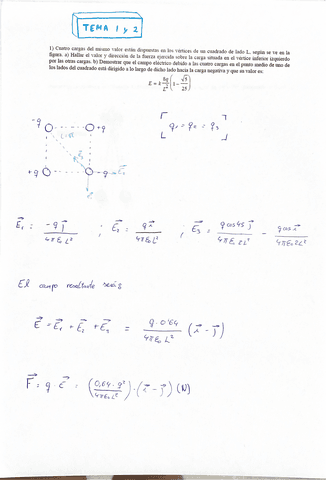 TEMA 1 y 2
1) Cuatro cargas del mismo valor están dispuestas en los vértices de un cuadrado de lado L, según se ve en la
figura. a) Hallar el valor y dirección de la fuerza ejercida sobre la carga situada en el vértice inferior izquierdo
por las otras cargas. b) Demostrar que el campo eléctrico debido a las cuatro cargas en el punto medio de uno de
los lados del cuadrado está dirigido a lo largo de dicho lado hacia la carga negativa y que su valor es:
E = k 8q/L² (1 − √5/25)
-q +q
+q -q
E₁ = -q j / 4πE₀L² ; E₂ = q i / 4πE₀L² ; E₃ = q cos45 j / 4πE₀ 2L² −
El campo resultante será:
E = E₁ + E₂ + E₃ = q·0'64 / 4πE₀L² (i − j)
F = q · E = (0,64·q² / 4πE₀L²) · (i − j) (N)